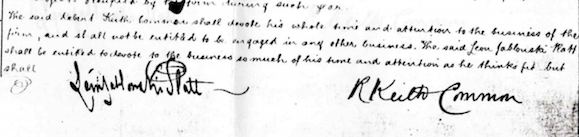 occupied by the firm during such year.
The said Robert Keith Common shall devote his whole time and attention to the business of the
firm, and shall not be entitled to be engaged in any other business. The said Leon Jablonski Platt
shall be entitled to devote to the business so much of his time and attention as he thinks fit but
shall
Leon Jablonski Platt
R Keith Common